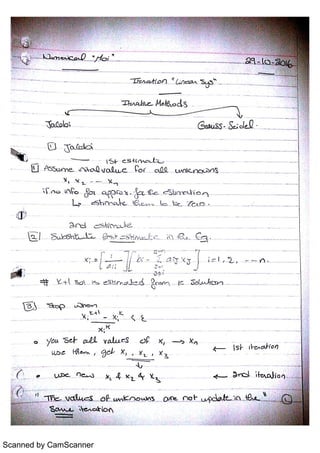 Numerical "Abi"
29-10-2016
Iteration "Linear Sys"
Iterative Methods
Jacobi
Gauss-Seidel
1 Jacobi
1st estimate
1 Assume initial value for all unknowns
x1 x2 -- xn
if no info for approx. for the estimation
↳ estimate them to be zero.
2nd estimate
2 Substitute first estimate in the Eq.
xi = [1/aii] [bi - Σ aij xj] i=1,2,--n.
# K+1 Sol is estimated from K Solution
3 Stop when
xi^K+1 - xi^K / xi^K < ε
• you Set all values of x1 → xn
use them, get x1, x2, x3 ← 1st iteration
• use new x1 & x2 & x3 ← 2nd iteration
"The values of unknowns are not update in the"
Same iteration
1
Scanned by CamScanner